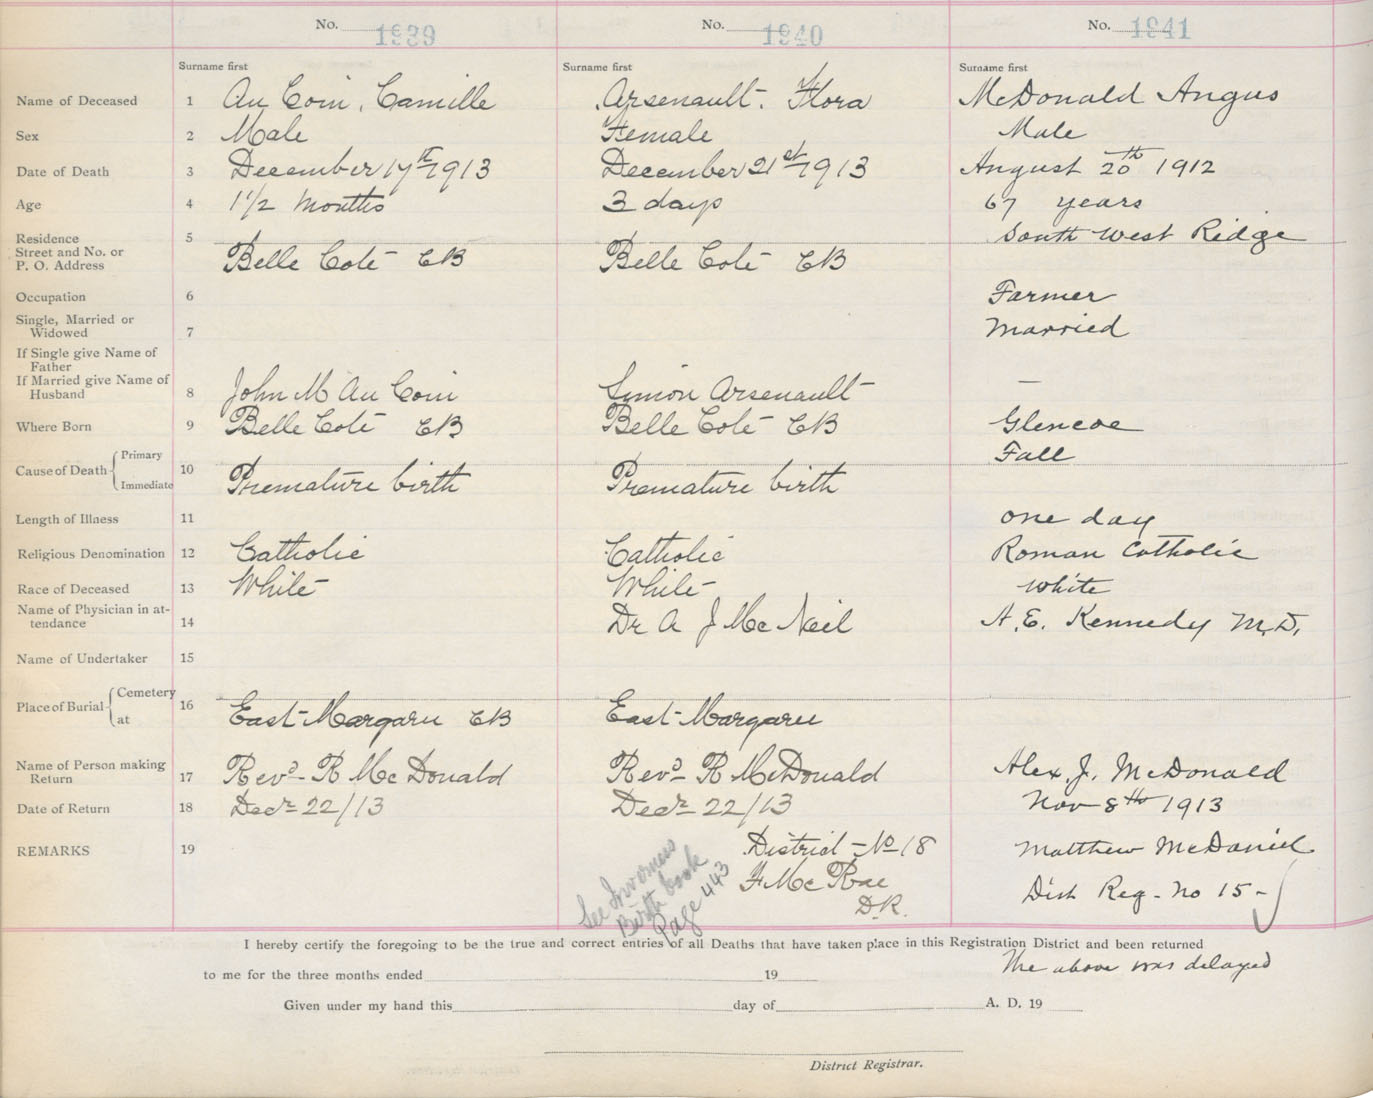 No. 1939 No. 1940 No. 1941
Surname first Surname first Surname first
Name of Deceased 1 Au Coin, Camille Arsenault. Flora McDonald Angus
Sex 2 Male Female Male
Date of Death 3 December 17th 1913 December 21st 1913 August 20th 1912
Age 4 1 1/2 months 3 days 67 years
Residence 5 South West Ridge
Street and No. or
P. O. Address Belle Coté CB Belle Coté CB
Occupation 6 Farmer
Single, Married or
Widowed 7 Married
If Single give Name of
Father
If Married give Name of
Husband 8 John M Au Coin Simon Arsenault —
Where Born 9 Belle Coté CB Belle Coté CB Glencoe
Cause of Death Primary 10 Fall
Immediate Premature birth Premature birth
Length of Illness 11 one day
Religious Denomination 12 Catholic Catholic Roman Catholic
Race of Deceased 13 White White White
Name of Physician in at-
tendance 14 Dr A J McNeil A. E. Kennedy M.D.
Name of Undertaker 15
Place of Burial Cemetery 16
at East Margaree CB East Margaree
Name of Person making
Return 17 Revd R McDonald Revd R McDonald Alex. J. McDonald
Date of Return 18 Decr 22/13 Decr 22/13 Nov 8th 1913
REMARKS 19 District No 18 Matthew McDaniel
F McRae Dist Reg - No 15 -
D.R.
See Inverness
Birth book
Page 443
I hereby certify the foregoing to be the true and correct entries of all Deaths that have taken place in this Registration District and been returned
The above was delayed
to me for the three months ended 19
Given under my hand this day of A. D. 19
District Registrar.